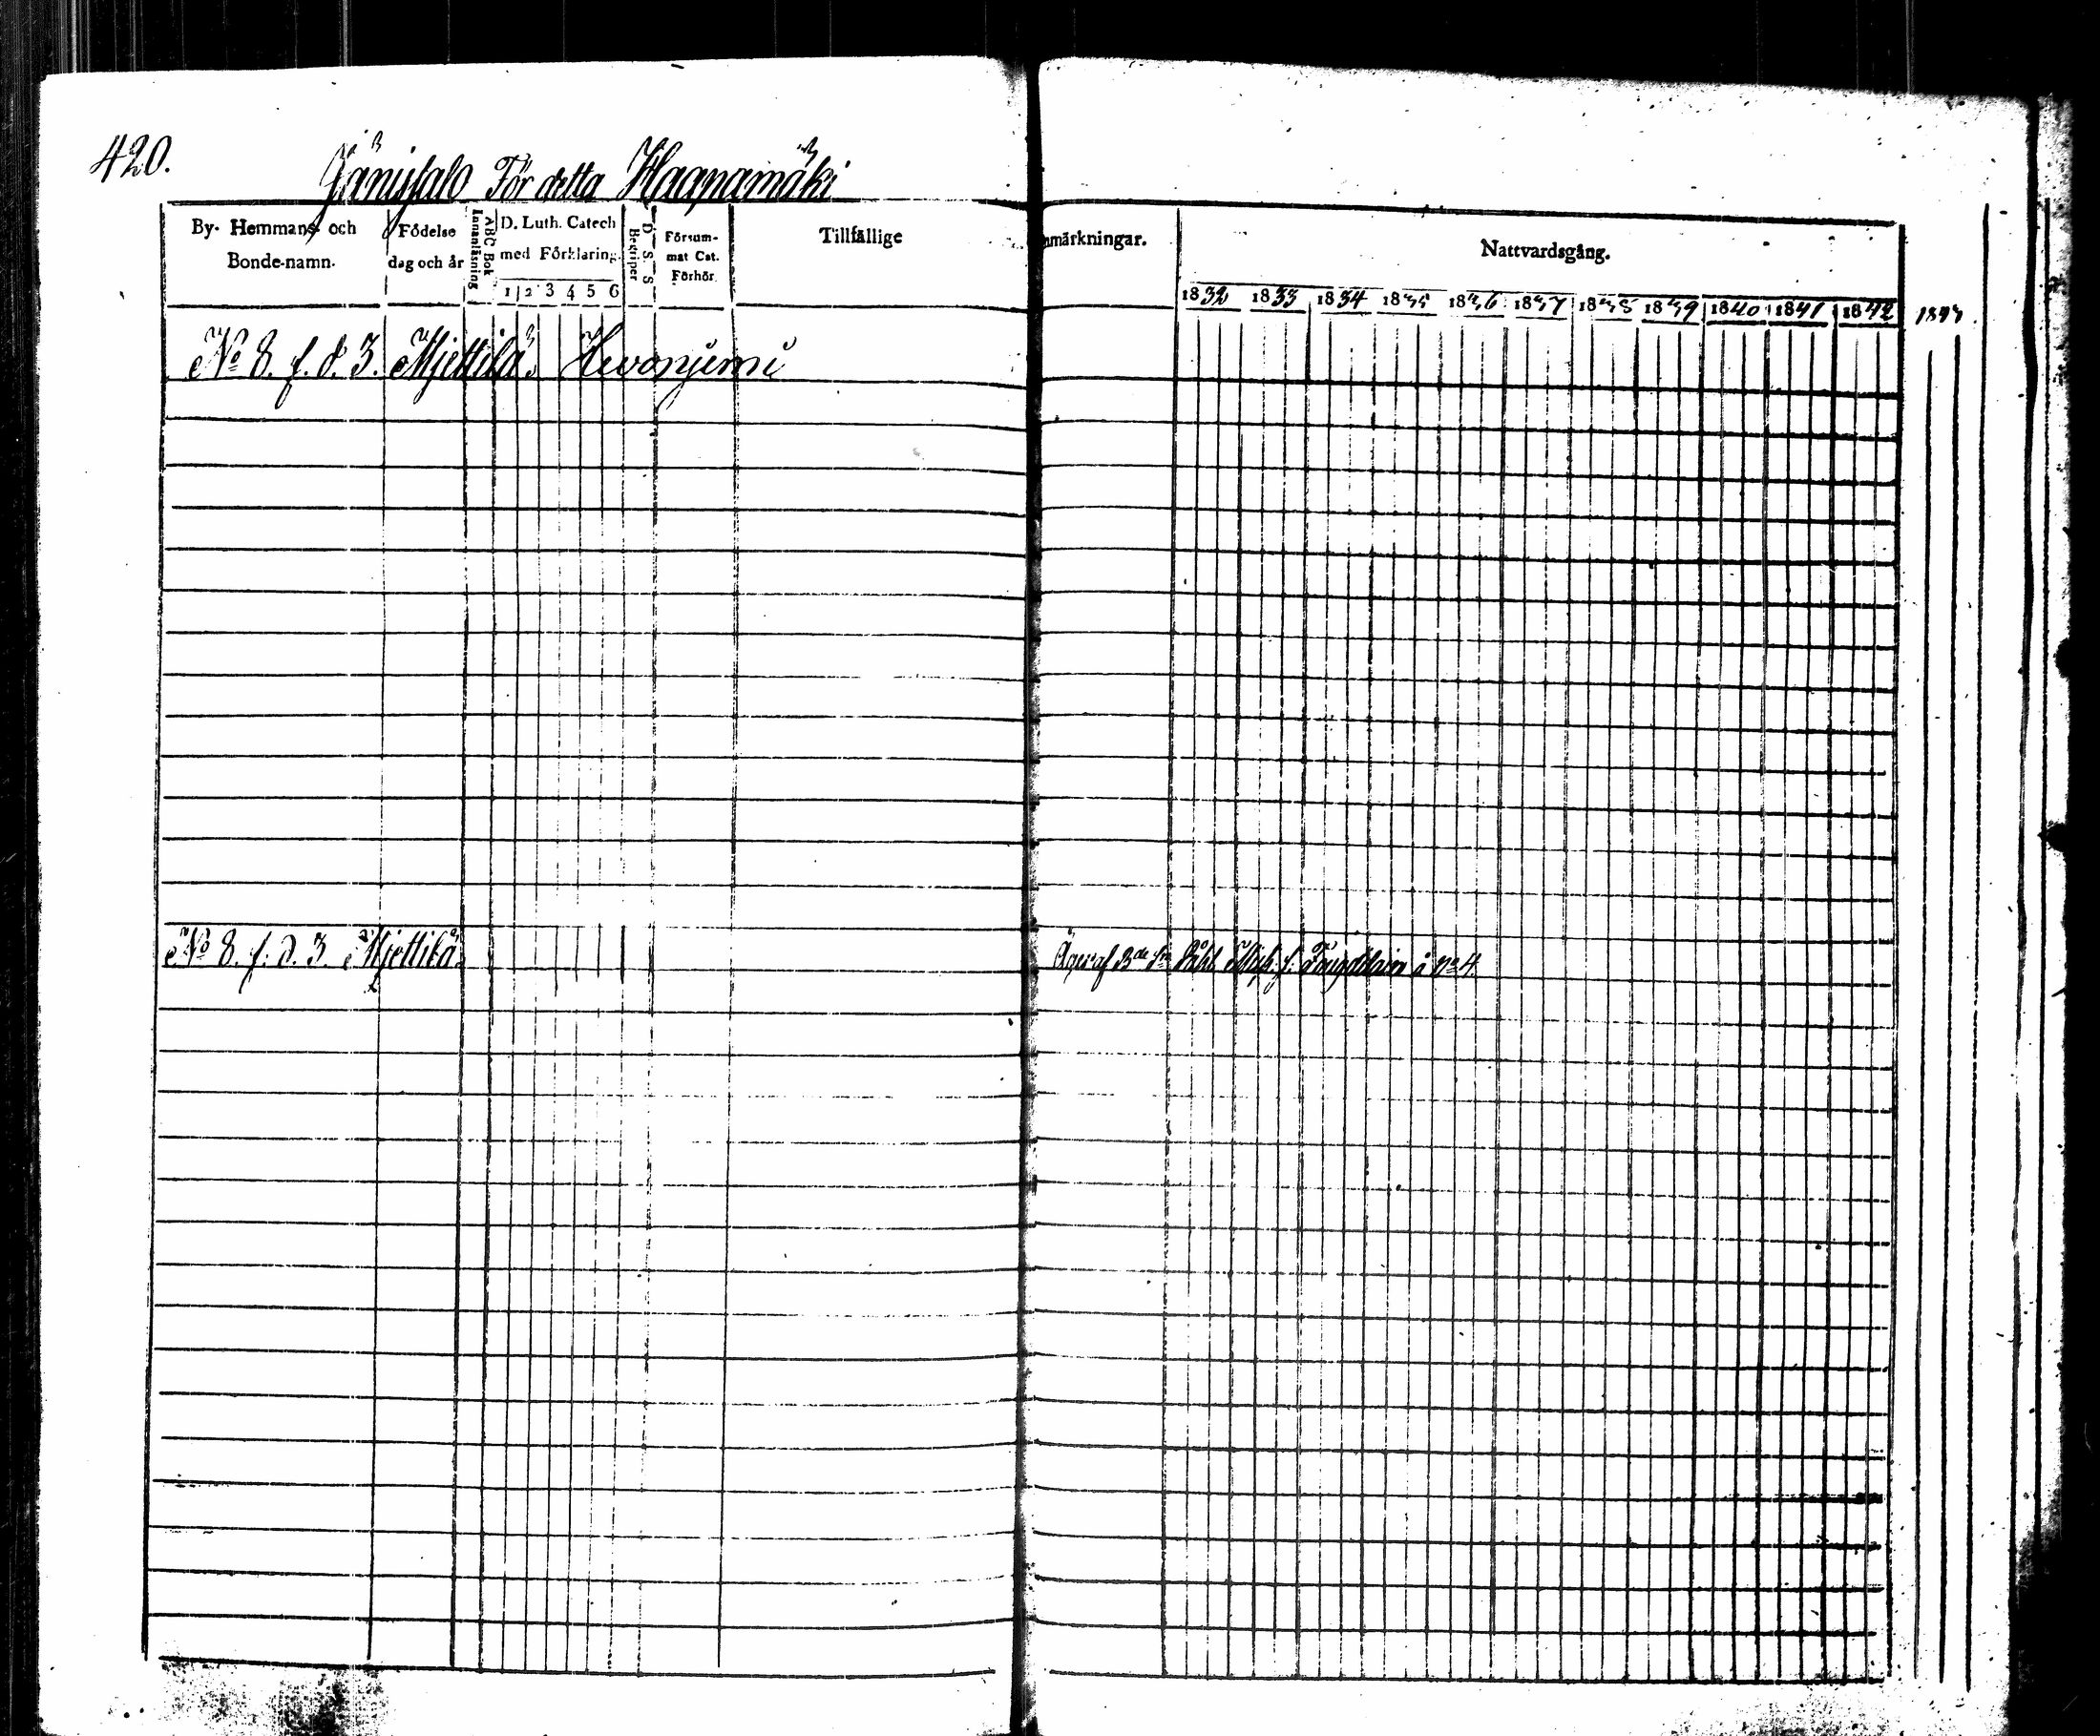 420.
Jänissalo För detta Haapamäki
By- Hemmans och Bonde-namn.
Födelse dag och år
ABC Bok Innanläsning
D. Luth. Catech med Förklaring.
1 2 3 4 5 6
D. S. S. Begriper
Försum- mat Cat. Förhör
Tillfällige
nmärkningar.
Nattvardsgång.
1832 1833 1834 1835 1836 1837 1838 1839 1840 1841 1842 1843
No 8. f. d. 3. Mjettilä. Hevonjemi
No 8. f. d. 3. Mjettilä.
Äges af å no 4.